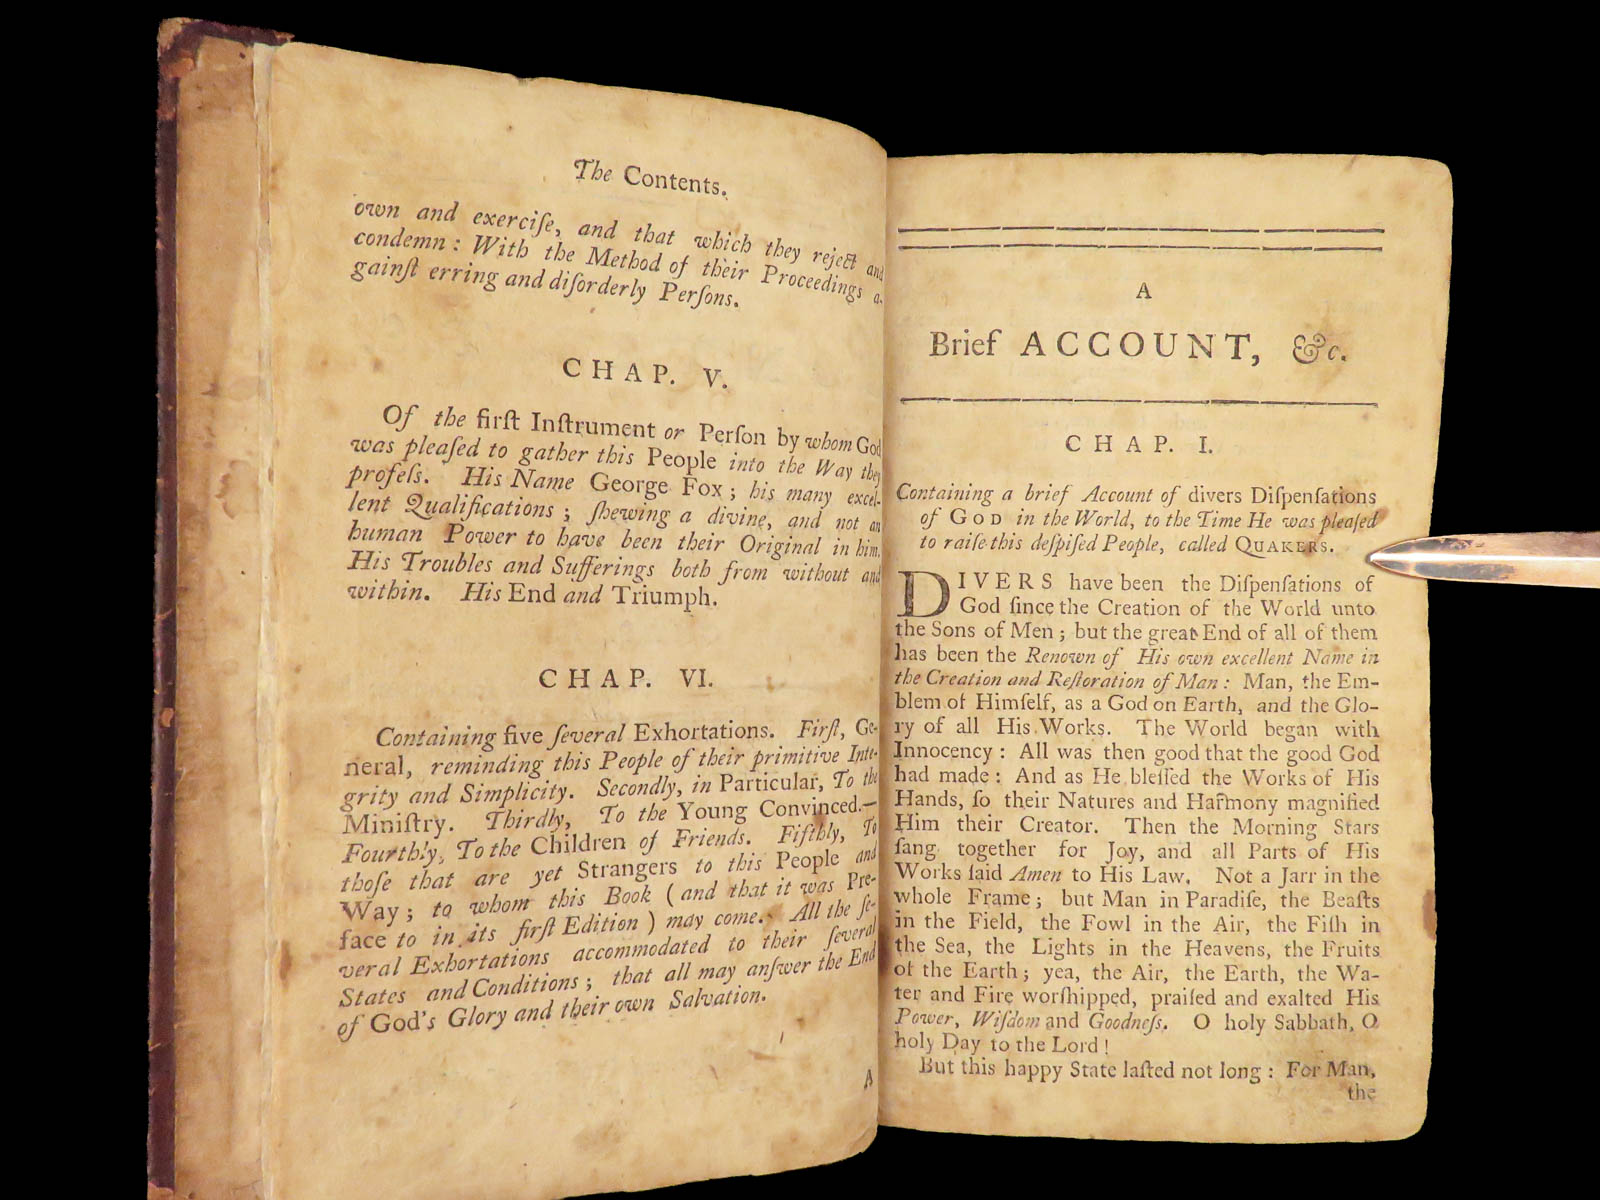 The Contents.
own and exerciſe, and that which they reject and
condemn : With the Method of their Proceedings a-
gainſt erring and diſorderly Perſons.
CHAP. V.
Of the firſt Inſtrument or Perſon by whom God
was pleaſed to gather this People into the Way they
profeſs. His Name George Fox ; his many excel-
lent Qualifications ; ſhewing a divine, and not an
human Power to have been their Original in him.
His Troubles and Sufferings both from without and
within. His End and Triumph.
CHAP. VI.
Containing five ſeveral Exhortations. Firſt, Ge-
neral, reminding this People of their primitive Inte-
grity and Simplicity. Secondly, in Particular, To the
Miniſtry. Thirdly, To the Young Convinced.—
Fourthly, To the Children of Friends. Fifthly, To
thoſe that are yet Strangers to this People and
Way ; to whom this Book ( and that it was Pre-
face to in its firſt Edition ) may come. All the ſe-
veral Exhortations accommodated to their ſeveral
States and Conditions ; that all may anſwer the End
of God's Glory and their own Salvation.
A
A
Brief ACCOUNT, &c.
CHAP. I.
Containing a brief Account of divers Diſpenſations
of GOD in the World, to the Time He was pleaſed
to raiſe this deſpiſed People, called QUAKERS.
DIVERS have been the Diſpenſations of
God ſince the Creation of the World unto
the Sons of Men ; but the great End of all of them
has been the Renown of His own excellent Name in
the Creation and Reſtoration of Man : Man, the Em-
blem of Himſelf, as a God on Earth, and the Glo-
ry of all His Works. The World began with
Innocency : All was then good that the good God
had made : And as He bleſſed the Works of His
Hands, ſo their Natures and Harmony magnified
Him their Creator. Then the Morning Stars
ſang together for Joy, and all Parts of His
Works ſaid Amen to His Law. Not a Jarr in the
whole Frame ; but Man in Paradiſe, the Beaſts
in the Field, the Fowl in the Air, the Fiſh in
the Sea, the Lights in the Heavens, the Fruits
of the Earth ; yea, the Air, the Earth, the Wa-
ter and Fire worſhipped, praiſed and exalted His
Power, Wiſdom and Goodneſs. O holy Sabbath, O
holy Day to the Lord !
But this happy State laſted not long : For Man,
the